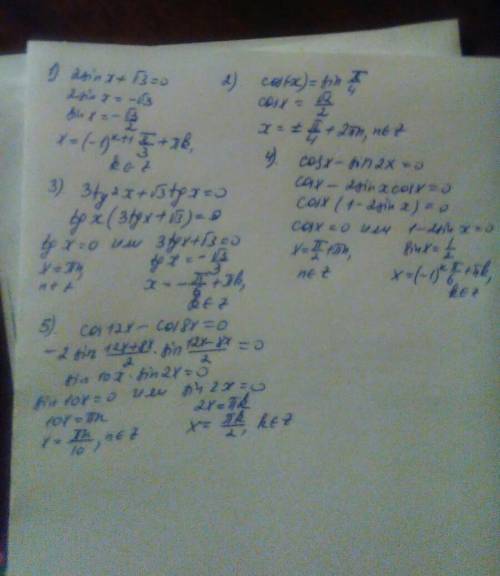 1) 2sin x + √3 = 0
2sin x = -√3
sin x = -√3/2
x = (-1)^(k+1) π/3 + πk,
k ∈ Z
2) cos(-x) = sin π/4
cos x = √2/2
x = ± π/4 + 2πn, n ∈ Z
3) 3tg²x + √3 tg x = 0
tg x (3tg x + √3) = 0
tg x = 0 или 3tg x + √3 = 0
x = πn, tg x = -√3/3
n ∈ Z x = -π/6 + πk,
k ∈ Z
4) cos x - sin 2x = 0
cos x - 2sin x cos x = 0
cos x (1 - 2sin x) = 0
cos x = 0 или 1 - 2sin x = 0
x = π/2 + πn, sin x = 1/2
n ∈ Z x = (-1)^k π/6 + πk,
k ∈ Z
5) cos 12x - cos 8x = 0
-2 sin (12x+8x)/2 · sin (12x-8x)/2 = 0
sin 10x · sin 2x = 0
sin 10x = 0 или sin 2x = 0
10x = πn 2x = πk
x = πn/10, n ∈ Z x = πk/2, k ∈ Z